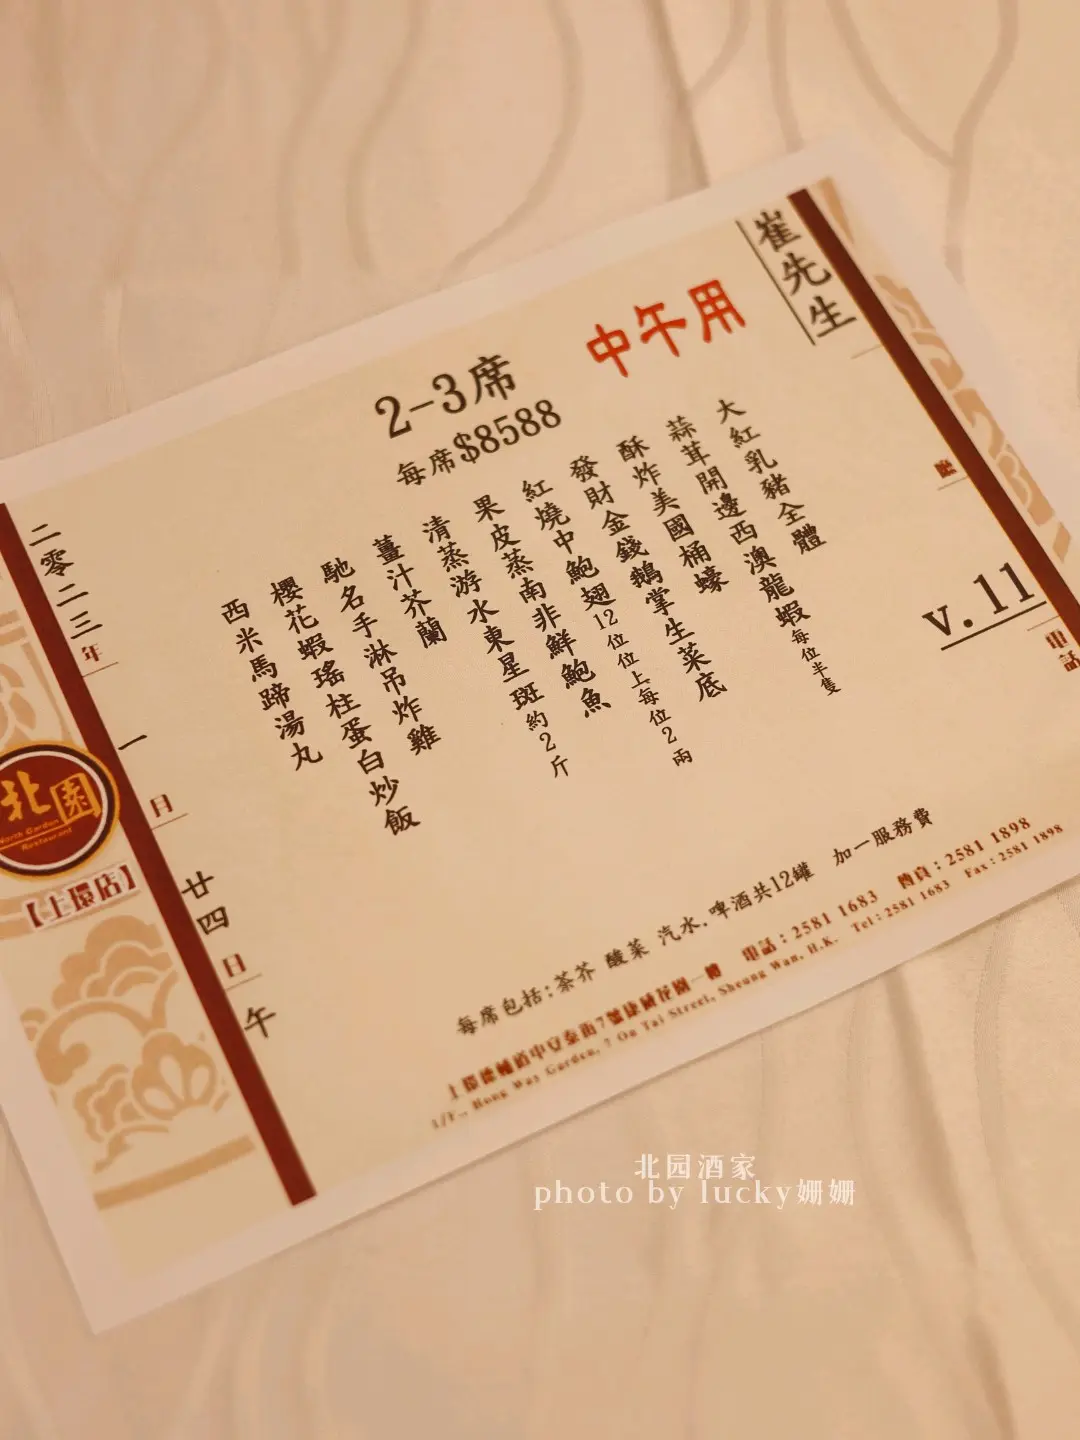 崔先生
中午用
2-3席
每席$8588
v.11
電話
大紅乳豬全體
蒜茸開邊西澳龍蝦每位半隻
酥炸美國桶蠔
發財金錢鵝掌生菜底
紅燒中鮑翅12位位上每位2兩
果皮蒸南非鮮鮑魚
清蒸游水東星斑約2斤
薑汁芥蘭
馳名手淋吊炸雞
櫻花蝦瑤柱蛋白炒飯
西米馬蹄湯丸
二零二三年一月廿四日午
北園
North Garden
Restaurant
【上環店】
每席包括:茶芥 酸菜 汽水.啤酒共12罐 加一服務費
上環德輔道中安泰街7號康威花園一樓 電話:2581 1683 傳真:2581 1898
1/F., Hong Way Garden, 7 On Tai Street, Sheung Wan, H.K. Tel:2581 1683 Fax:2581 1898
北园酒家
photo by lucky姗姗